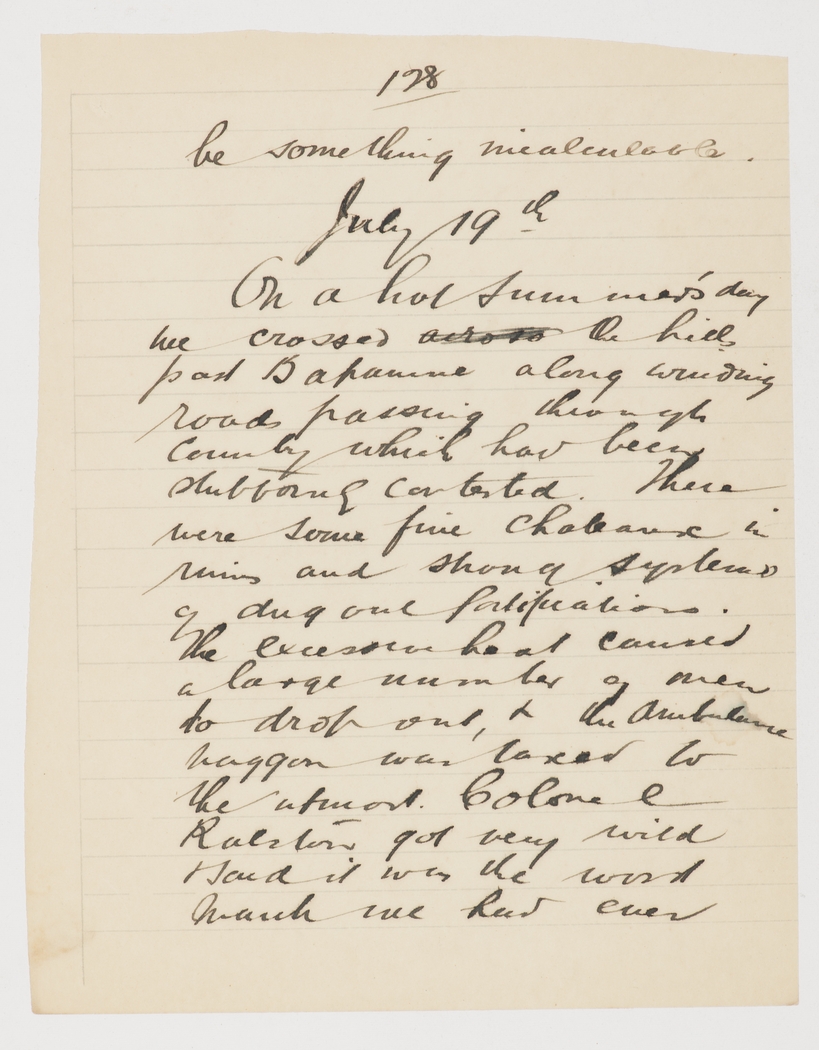 128
be something incalculable.
July 19th
On a hot summer's day
we crossed across the hills
past Bapaume along winding
roads passing through
country which had been
stubbornly contested. There
were some fine Chateaux in
ruins and strong systems
of dug out fortifications.
The excessive heat caused
a large number of men
to drop out, & the Ambulance
waggon was taxed to
the utmost. Colonel
Ralston got very wild
& said it was the worst
march we had ever